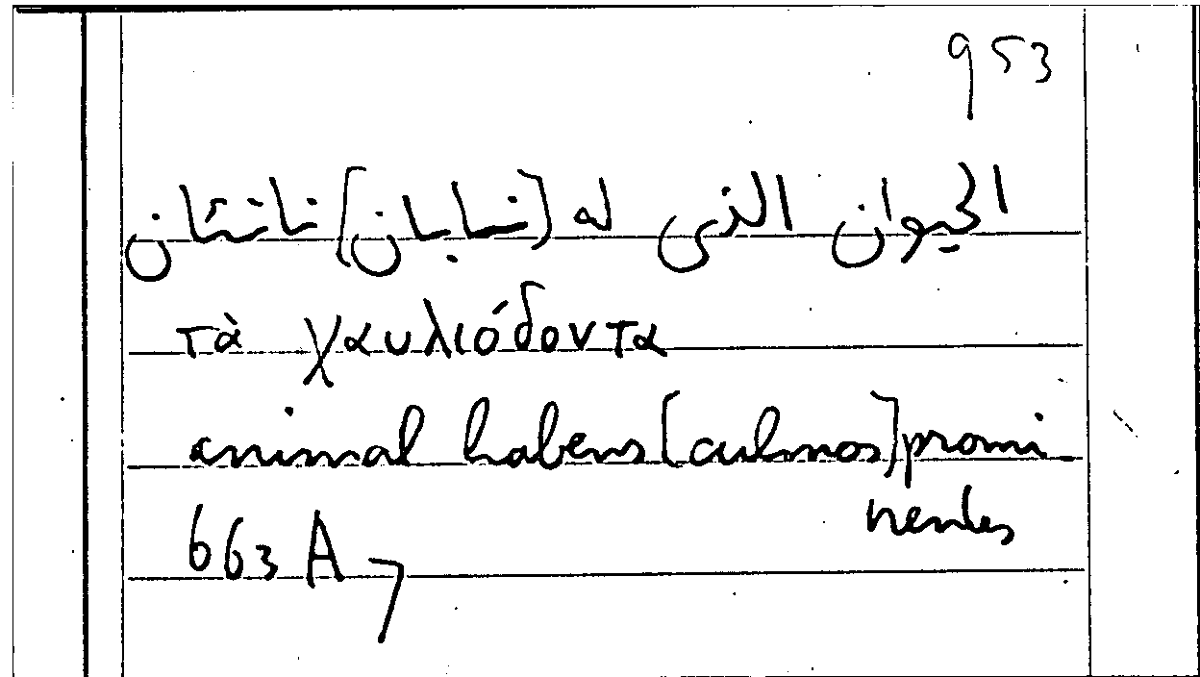 953
الحيوان الذى له [نابان] ناتئان
τὰ χαυλιόδοντα
animal habens [culmos] promi-
nentes
663 A 7